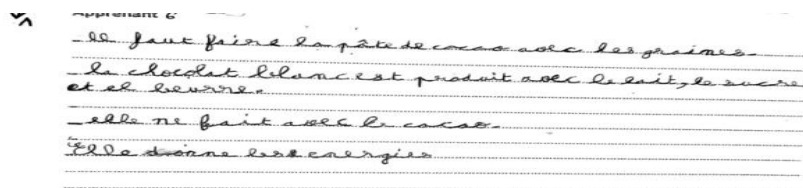 Apprenant 6
- Il faut faire la pâte de cacao avec les graines.
- le chocolat blanc est produit avec le lait, le sucre
et el beurre.
- elle ne fait avec le cacao.
Elle donne les energies